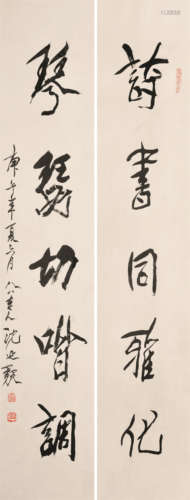 詩書同雅化
琴瑟切喈調
庚午年夏六月 八十老人沈延毅